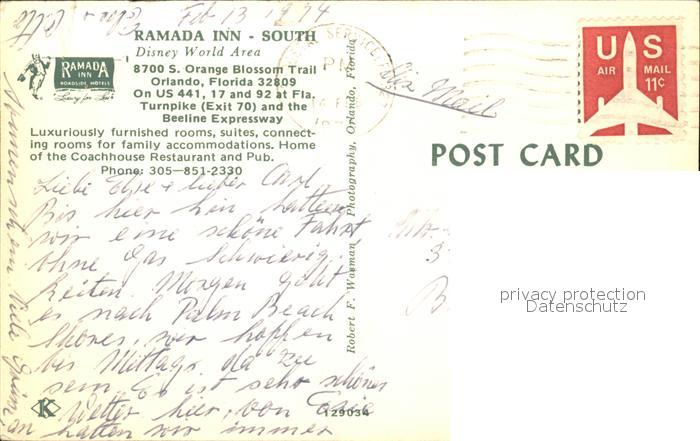 Feb 13 1974
RAMADA INN - SOUTH
Disney World Area
8700 S. Orange Blossom Trail
Orlando, Florida 32809
On US 441, 17 and 92 at Fla.
Turnpike (Exit 70) and the
Beeline Expressway
Luxuriously furnished rooms, suites, connect-
ing rooms for family accommodations. Home
of the Coachhouse Restaurant and Pub.
Phone: 305-851-2330
RAMADA
INN
ROADSIDE HOTELS
PM
Air Mail
US
AIR MAIL
11¢
POST CARD
Liebe Elsie + lieber Carl,
Bis hier hin hatten
wir eine schöne Fahrt
ohne Gas Schwierig
keiten. Morgen geht
es nach Palm Beach
Shores, wir hoffen
bis Mittags da zu
sein. Es ist sehr schönes
Wetter hier, von
hatten wir immer
Viele
Robert F. Waxman Photography, Orlando, Florida
K
129034
privacy protection
Datenschutz